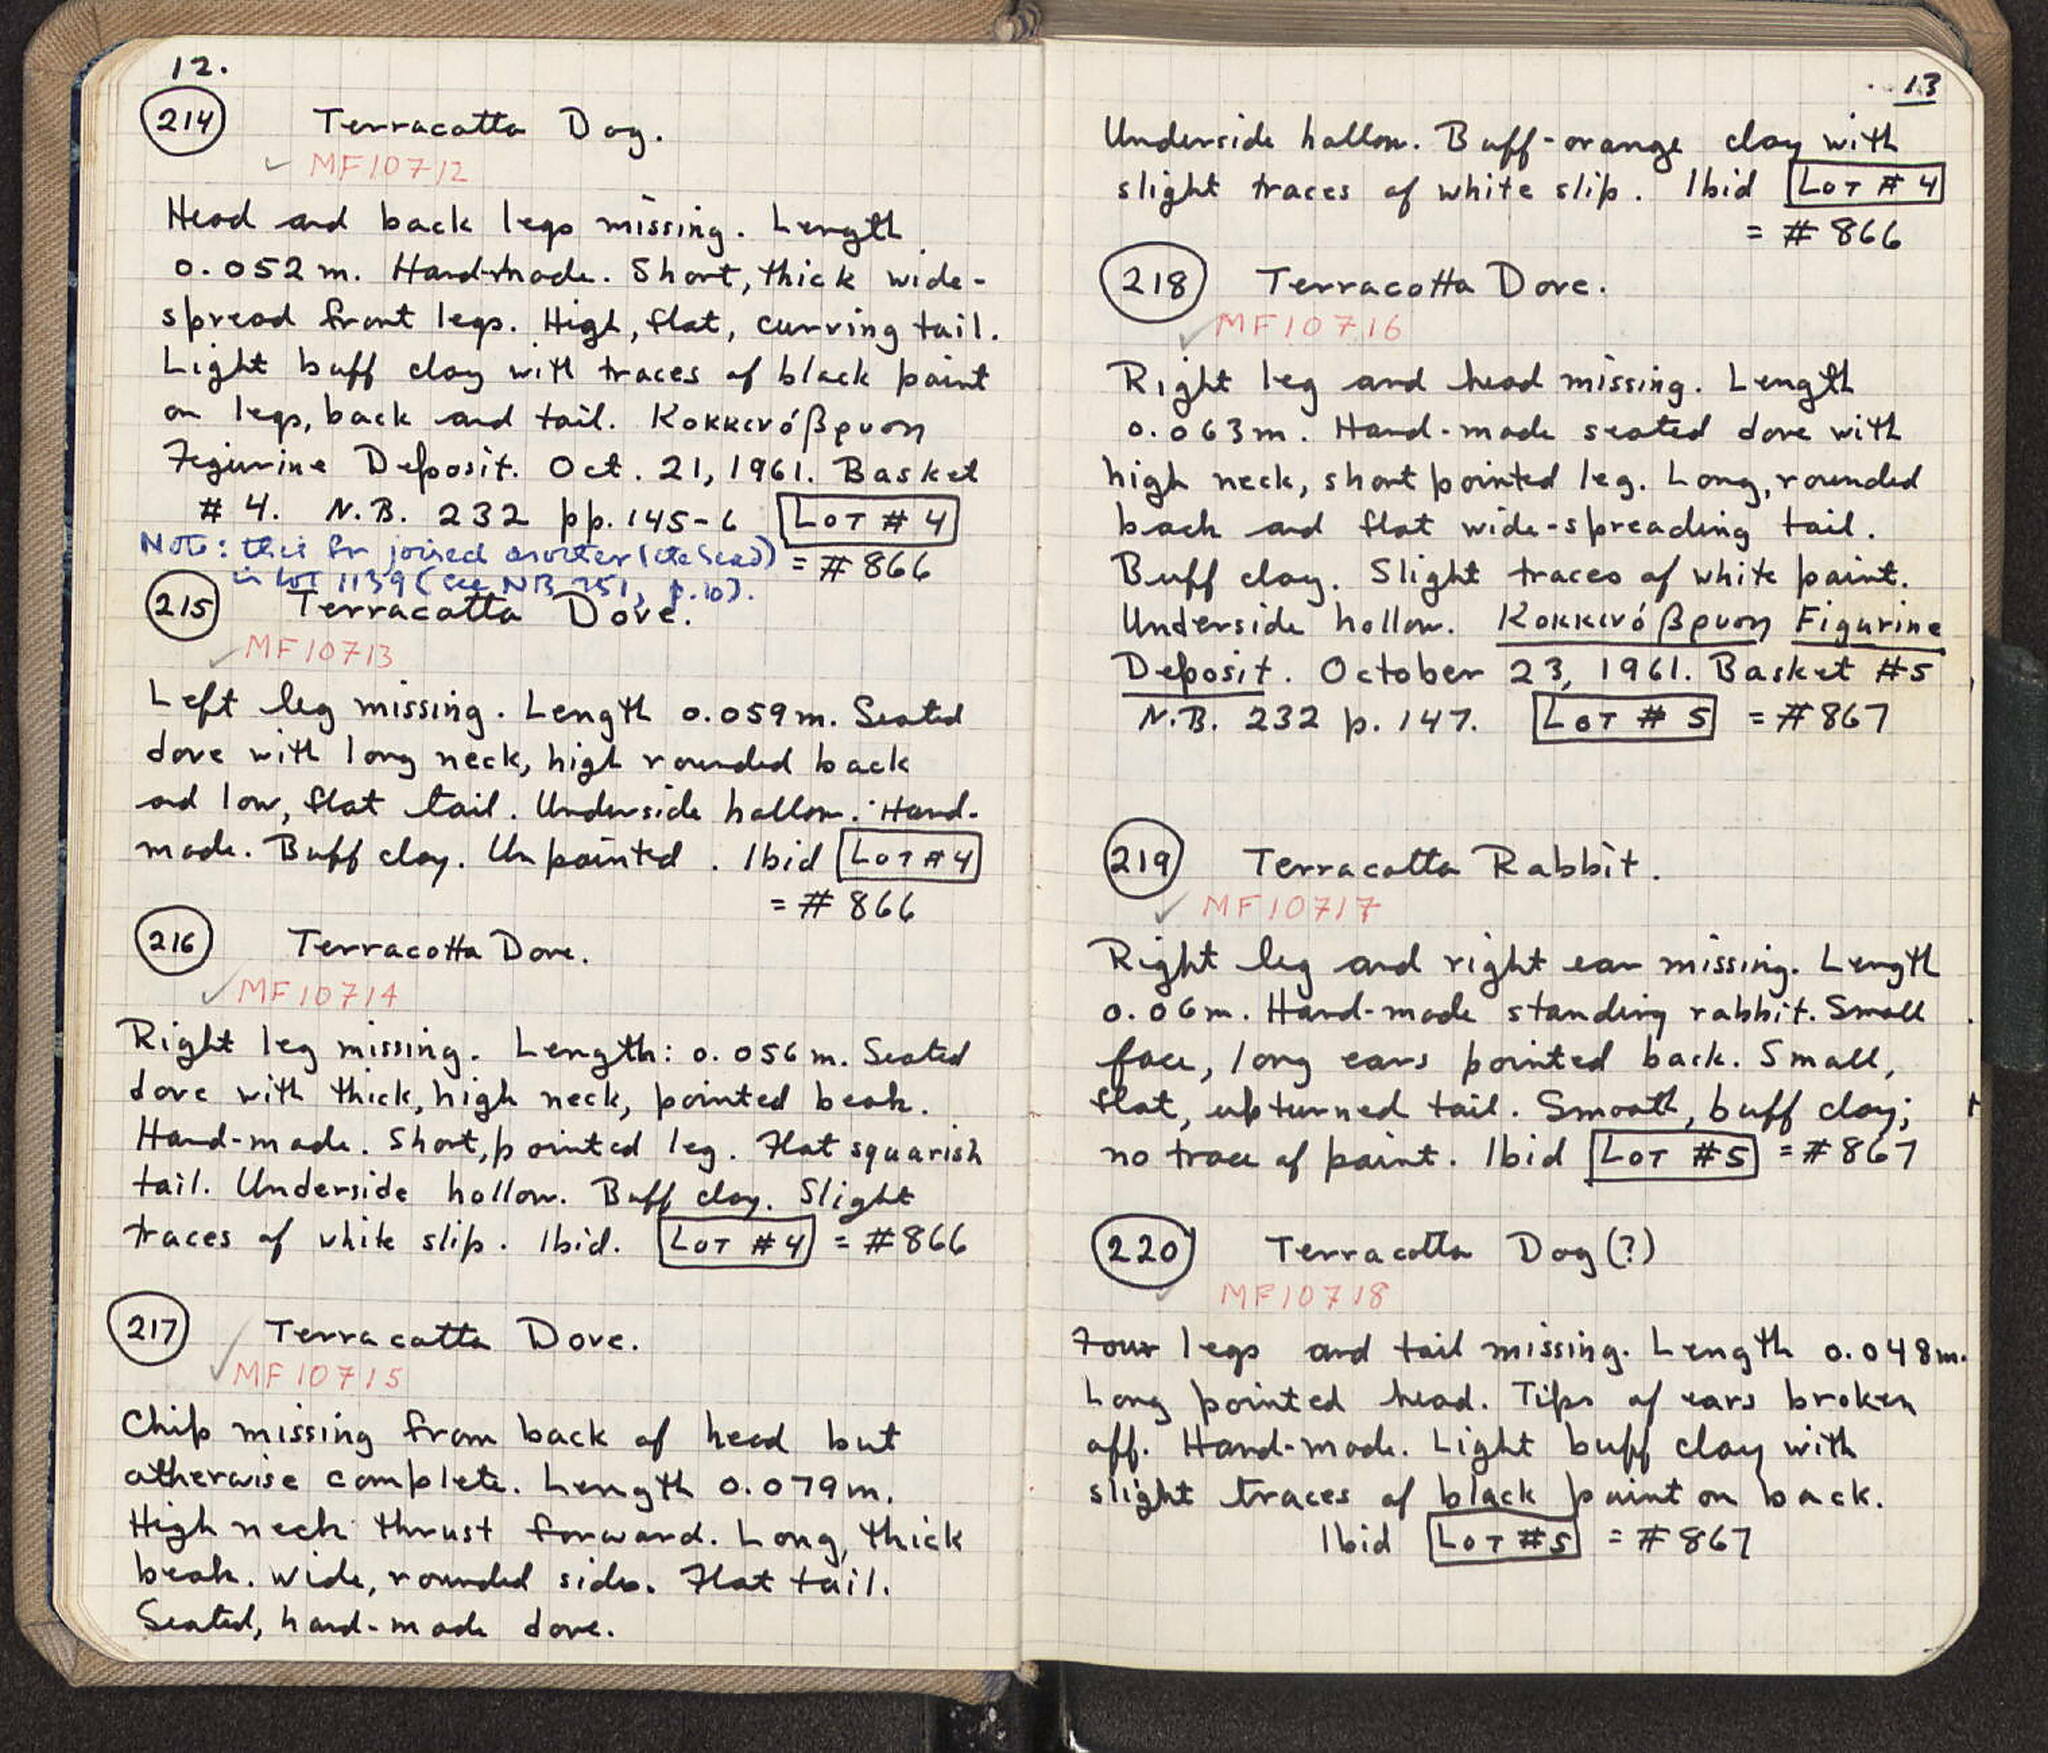 12.
214 Terracotta Dog.
MF10712
Head and back legs missing. Length
0.052 m. Handmade. Short, thick wide-
spread front legs. High, flat, curving tail.
Light buff clay with traces of black paint
on legs, back and tail. Κοκκινόβρυση
Figurine Deposit. Oct. 21, 1961. Basket
# 4. N.B. 232 pp. 145-6 LOT # 4
Note: this fr joined another (the head) = # 866
in lot 1139 (see NB 351, p. 10).
215 Terracotta Dove.
MF10713
Left leg missing. Length 0.059 m. Seated
dove with long neck, high rounded back
and low, flat tail. Underside hollow. Hand-
made. Buff clay. Unpainted. Ibid LOT # 4
= # 866
216 Terracotta Dove.
MF10714
Right leg missing. Length: 0.056 m. Seated
dove with thick, high neck, pointed beak.
Hand-made. Short, pointed leg. Flat squarish
tail. Underside hollow. Buff clay. Slight
traces of white slip. Ibid. LOT # 4 = # 866
217 Terracotta Dove.
MF10715
Chip missing from back of head but
otherwise complete. Length 0.079 m.
High neck thrust forward. Long, thick
beak. Wide, rounded sides. Flat tail.
Seated, hand-made dove.
13
Underside hollow. Buff-orange clay with
slight traces of white slip. Ibid LOT # 4
= # 866
218 Terracotta Dove.
MF10716
Right leg and head missing. Length
0.063 m. Hand-made seated dove with
high neck, short pointed leg. Long, rounded
back and flat wide-spreading tail.
Buff clay. Slight traces of white paint.
Underside hollow. Κοκκινόβρυση Figurine
Deposit. October 23, 1961. Basket #5
N.B. 232 p. 147. LOT # 5 = # 867
219 Terracotta Rabbit.
MF10717
Right leg and right ear missing. Length
0.06 m. Hand-made standing rabbit. Small
face, long ears pointed back. Small,
flat, upturned tail. Smooth, buff clay;
no trace of paint. Ibid LOT #5 = # 867
220 Terracotta Dog (?)
MF10718
Four legs and tail missing. Length 0.048 m.
Long pointed head. Tips of ears broken
off. Hand-made. Light buff clay with
slight traces of black paint on back.
Ibid LOT #5 = # 867